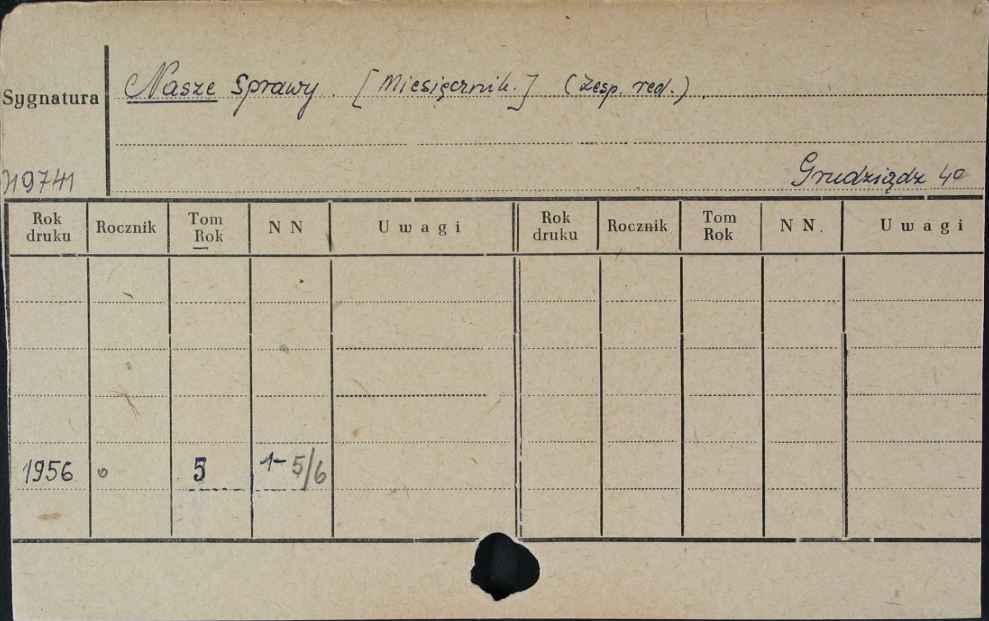 Nasze Sprawy. [Miesięcznik.] (Zesp. red.)
Sygnatura
Grudziądz 4°
Rok druku Rocznik Tom Rok N N Uwagi Rok druku Rocznik Tom Rok N N. Uwagi
1956 5 1-5/6